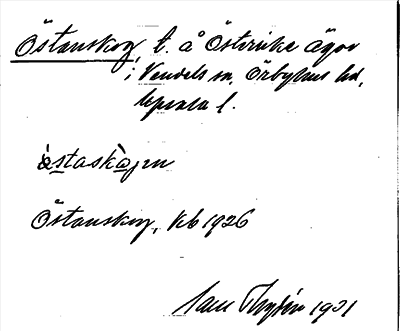 Östanskog, t. å Österuke ägor
i Vendels sn, Örbyhus hd,
Uppsala l.
ὰstaskὰgen
Östanskog, kb 1926
1931